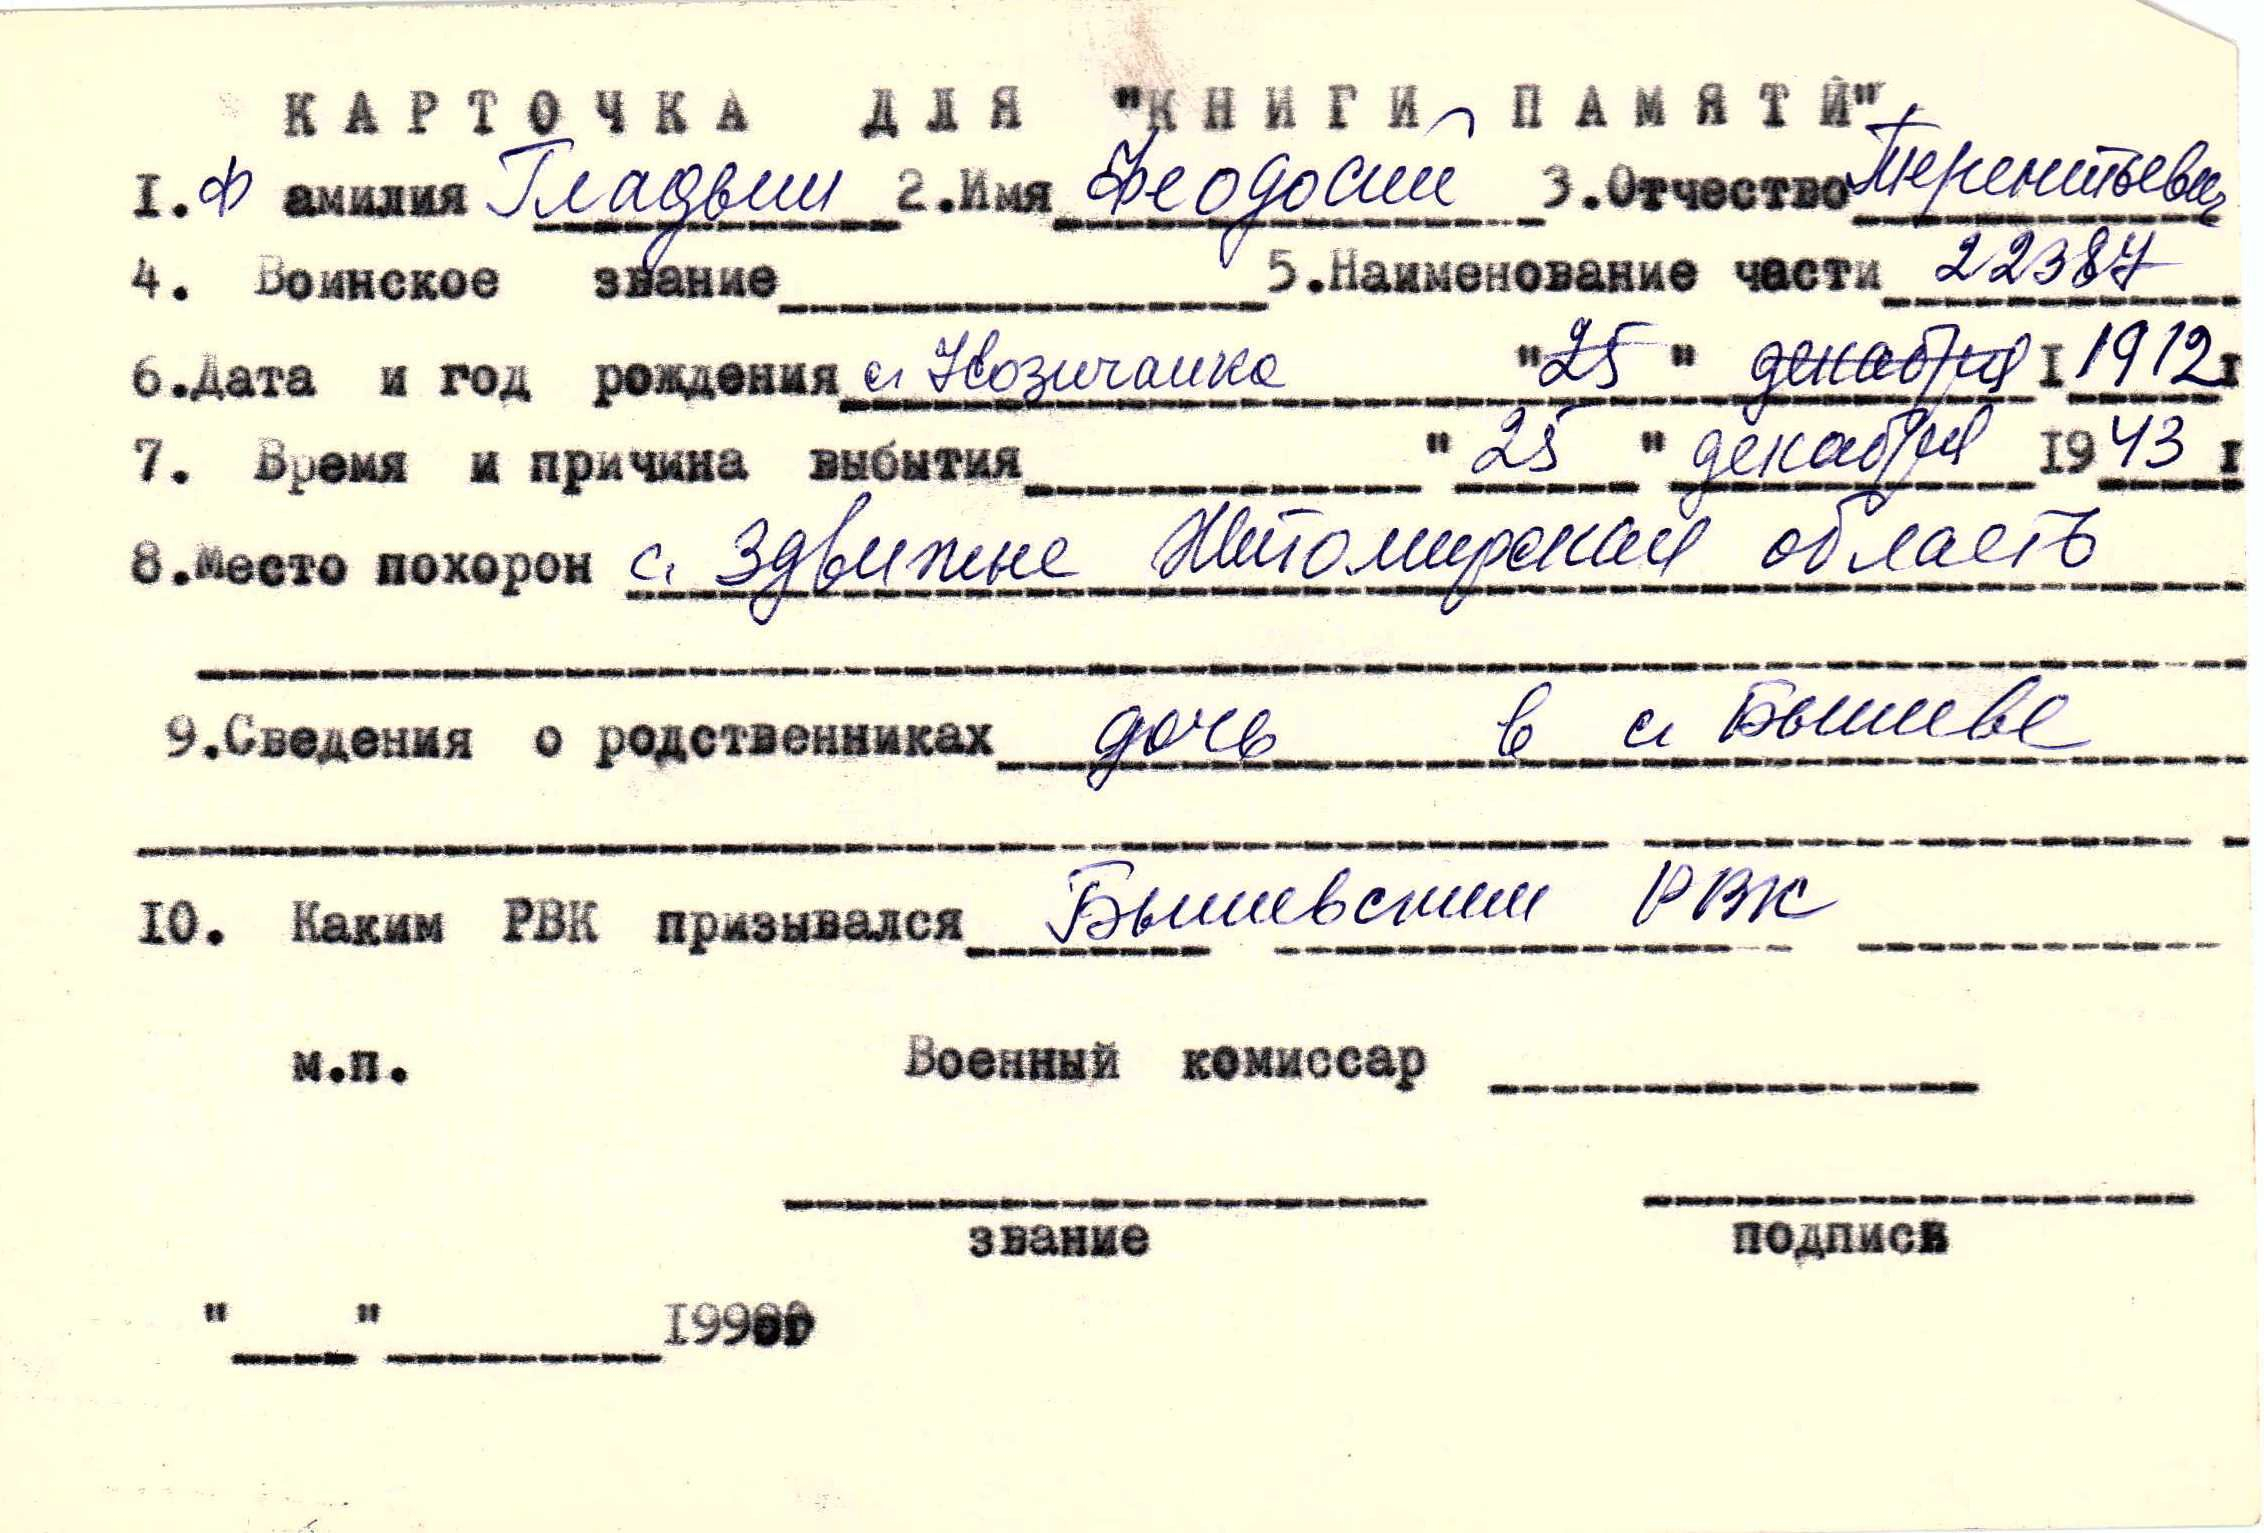 КАРТОЧКА ДЛЯ "КНИГИ ПАМЯТИ"
I.Фамилия Гладыш 2.Имя Феодосий 3.Отчество Терентьевич
4. Воинское звание 5.Наименование части 22387
6.Дата и год рождения с. "25" декабря I 1912 г
7. Время и причина выбытия "25" декабря 1943 г
8.Место похорон с. Здвижне Житомирская область
9.Сведения о родственниках дочь в с. Бышеве
10. Каким РВК призывался Бышевским РВК
м.п. Военный комиссар
звание подпись
" " 199